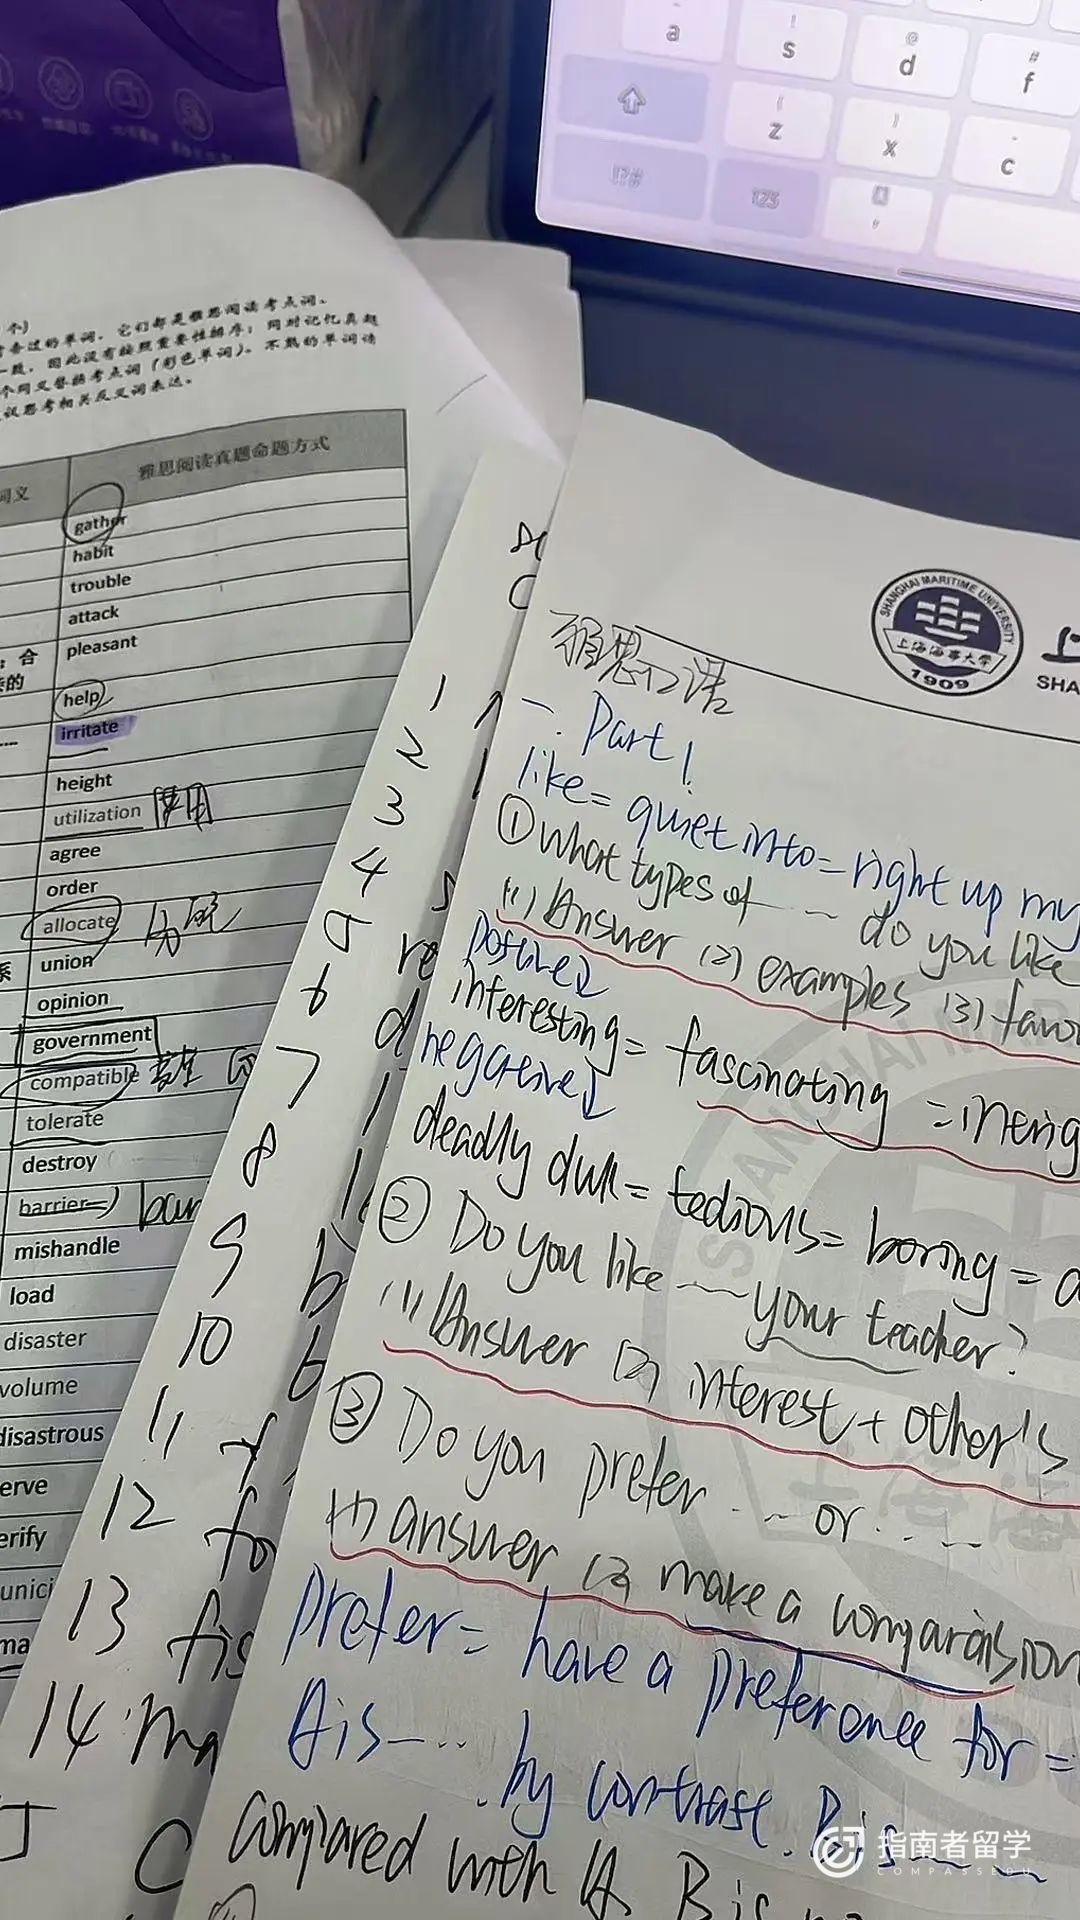 a
!
s
@
d
#
f
(
z
)
x
-
c
!?#
123
个)
考过的单词，它们都是雅思阅读考点词。
一致，因此没有按照重要性排序；同时记忆真题
个同义替换考点词（彩色单词）。不熟的单词请
议思考相关反义词表达。
词义
雅思阅读真题命题方式
gather
habit
trouble
attack
pleasant
；合
的
help
irritate
height
utilization 使用
agree
order
allocate 分配
系
union
opinion
government
compatible
tolerate
destroy
barrier
mishandle
load
disaster
volume
disastrous
erve
erify
unici
ma
1
2
3
4
5
6
7
8
9
10
11
12 fo
13 fis
14 ma
re
SHANGHAI MARITIME UNIVERSITY
上海海事大学
1909
SHA
雅思口语
一. Part 1
like = quiet into = right up my
① What types of ... do you like
(1) Answer (2) examples (3) favo
positive↓
interesting = fascinating =
neggative↓
deadly dull = tedious = boring = a
② Do you like — your teacher?
(1) Answer (2) interest + other's
③ Do you prefer ... or ...
(1) answer (2) make a comparaision
prefer = have a preference for =
A is ... by contrast. B is
compared with A B is
SHANGHAI MAR
指南者留学
COMPASSEDU